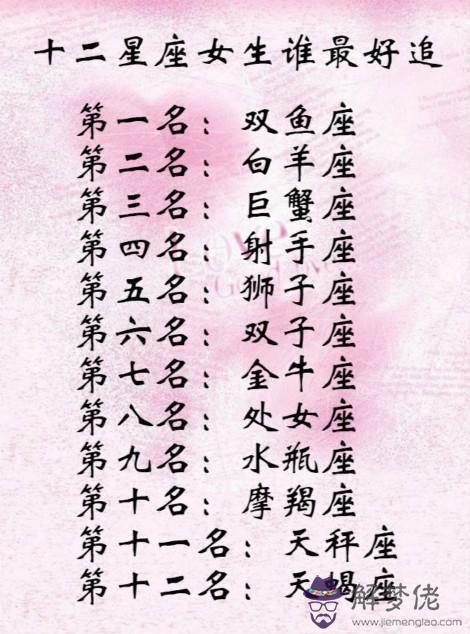 十二星座女生谁最好追
第一名：双鱼座
第二名：白羊座
第三名：巨蟹座
第四名：射手座
第五名：狮子座
第六名：双子座
第七名：金牛座
第八名：处女座
第九名：水瓶座
第十名：摩羯座
第十一名：天秤座
第十二名：天蝎座
解梦佬
www.jiemenglao.com